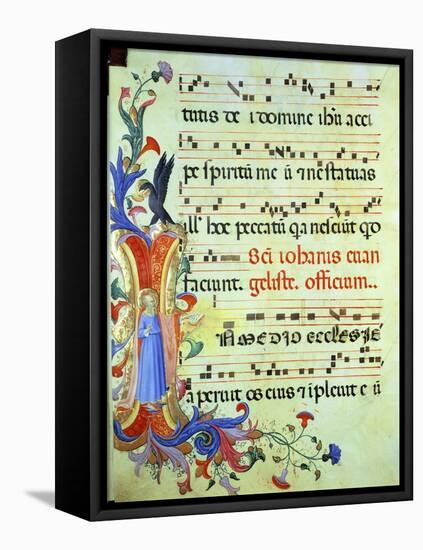 tutis de i domine ihu acci
pe spiritū me ū ⁊ ne statuas
ill' hoc peccatū qa nesciūt qd
Sci iohanis euan
faciunt. geliste. officium..
N MEDIO ECCLESIE
aperuit os eius ⁊ īpleuit e ū